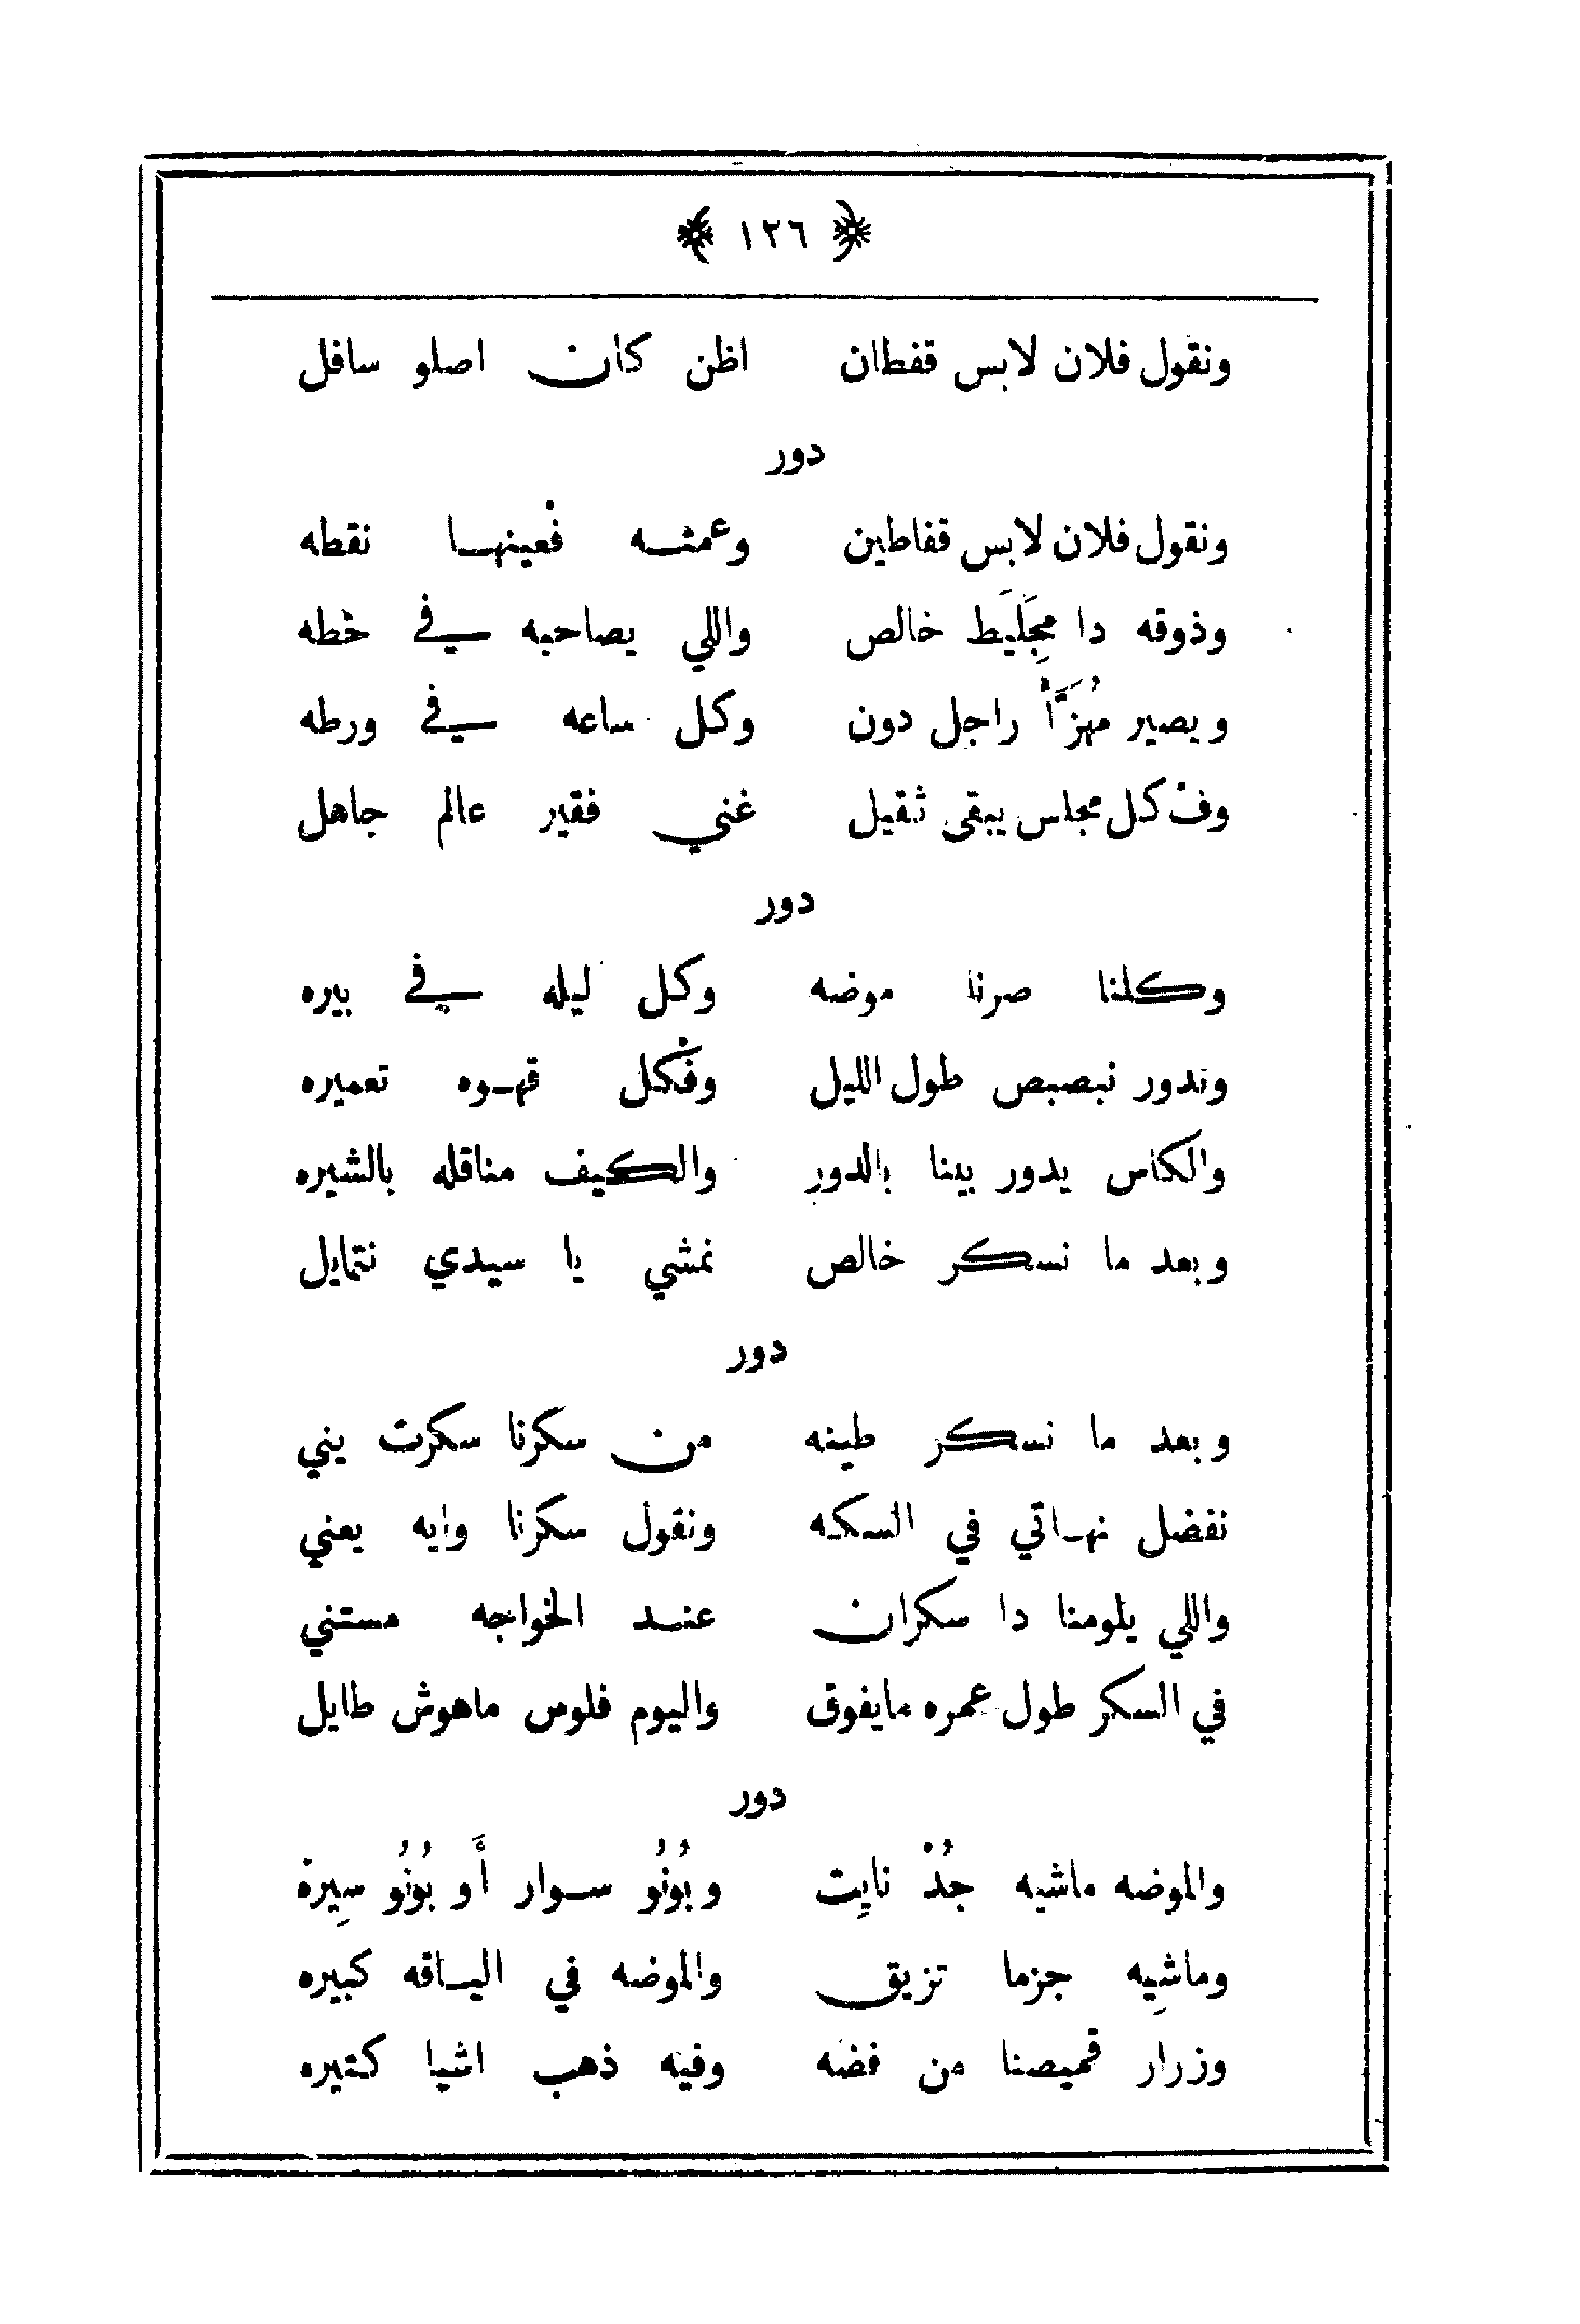 ﴿ ١٢٦ ﴾
ونقول فلان لابس قفطان اظن كان اصلو سافل
دور
ونقول فلان لابس قفاطين وعمته فْعينها نقطه
وذوقه دا مِجَلْيَط خالص واللي يصاحبه في خطه
ويصير مُهزَّأْ راجل دون وكل ساعه في ورطه
وفْ كل مجلس يبقى ثقيل غني فقير عالم جاهل
دور
وكلنا صرنا موضه وكل ليله في بيره
وندور نبصبص طول الليل وفْكل قهوه تعميره
والكاس يدور بيننا بالدور والكيف مناقله بالشيره
وبعد ما نسكر خالص نمشي يا سيدي نتمايل
دور
وبعد ما نسكر طينه من سكرنا سكرت يني
نفضل نهاتي في السكه ونقول سكرنا وايه يعني
واللي يلومنا دا سكران عند الخواجه مستني
في السكر طول عمره مايفوق واليوم فلوس ماهوش طايل
دور
والموضه ماشيه جُدْ نايِت وبُونُو سوار أَو بُونُو سِيرة
وماشِيه جزما تزيق والموضه في الياقه كبيره
وزرار قميصنا من فضه وفيه ذهب اشيا كتيره